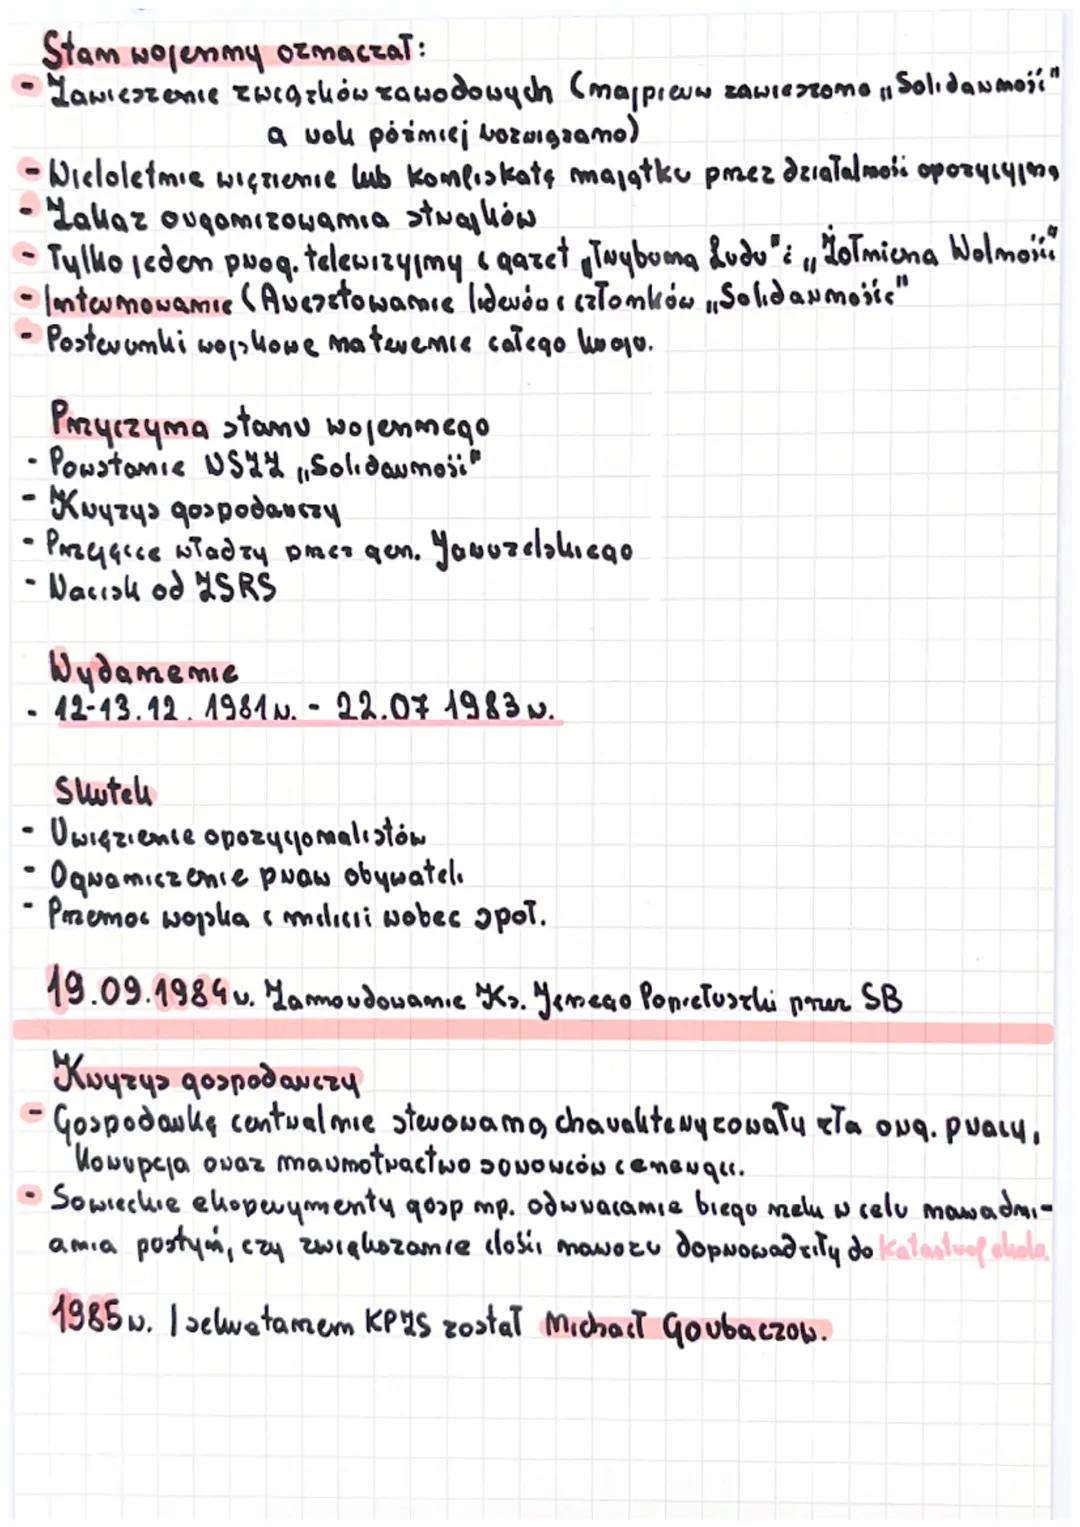 Stan wojenny oznaczał:
- Zawieszenie związków zawodowych (najpierw zawieszono „Solidarność"
a rok później rozwiązano)
- Wieloletnie więzienie lub konfiskatę majątku przez działalność opozycyjną
- Zakaz organizowania strajków
- Tylko jeden prog. telewizyjny i gazet „Trybuna Ludu" i „Żołnierza Wolności"
- Internowanie (Aresztowanie liderów i członków „Solidarności"
- Posterunki wojskowe na terenie całego kraju.
Przyczyna stanu wojennego
- Powstanie NSZZ „Solidarność"
- Kryzys gospodarczy
- Przejęcie władzy przez gen. Jaruzelskiego
- Nacisk od ZSRS
Wydarzenie
- 12-13.12.1981r. - 22.07 1983r.
Skutek
- Uwięzienie opozycjonalistów
- Ograniczenie praw obywateli
- Przemoc wojska i milicji wobec społ.
19.09.1984r. Zamordowanie Ks. Jerzego Popiełuszki przez SB
Kryzys gospodarczy
- Gospodarkę centralnie sterowaną charakteryzowały zła org. pracy,
korupcja oraz marnotractwo sorowców i energii.
- Sowieckie eksperymenty gosp np. odwracanie biegu rzek w celu nawadni-
ania pustyń, czy zwiększanie ilości nawozu doprowadziły do katastrof ekolo.
1985r. I sekretarzem KPZS został Michaił Gorbaczow.